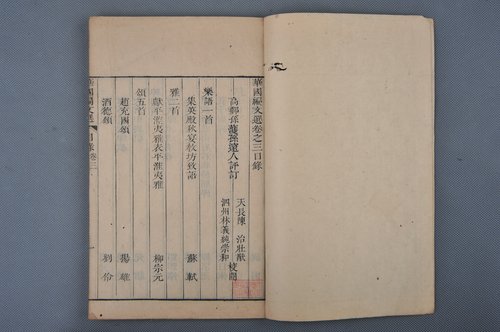 華國編文選卷之三目錄
高郵孫濩孫邃人評訂
天長陳 治壯猷
泗州林義琬崇和
校閱
樂語一首
集英殿秋宴教坊致語 蘇軾
雅二首
獻平淮夷雅表平淮夷雅 柳宗元
頌五首
趙充國頌 揚雄
酒德頌 劉伶
華國編文選 目錄卷三